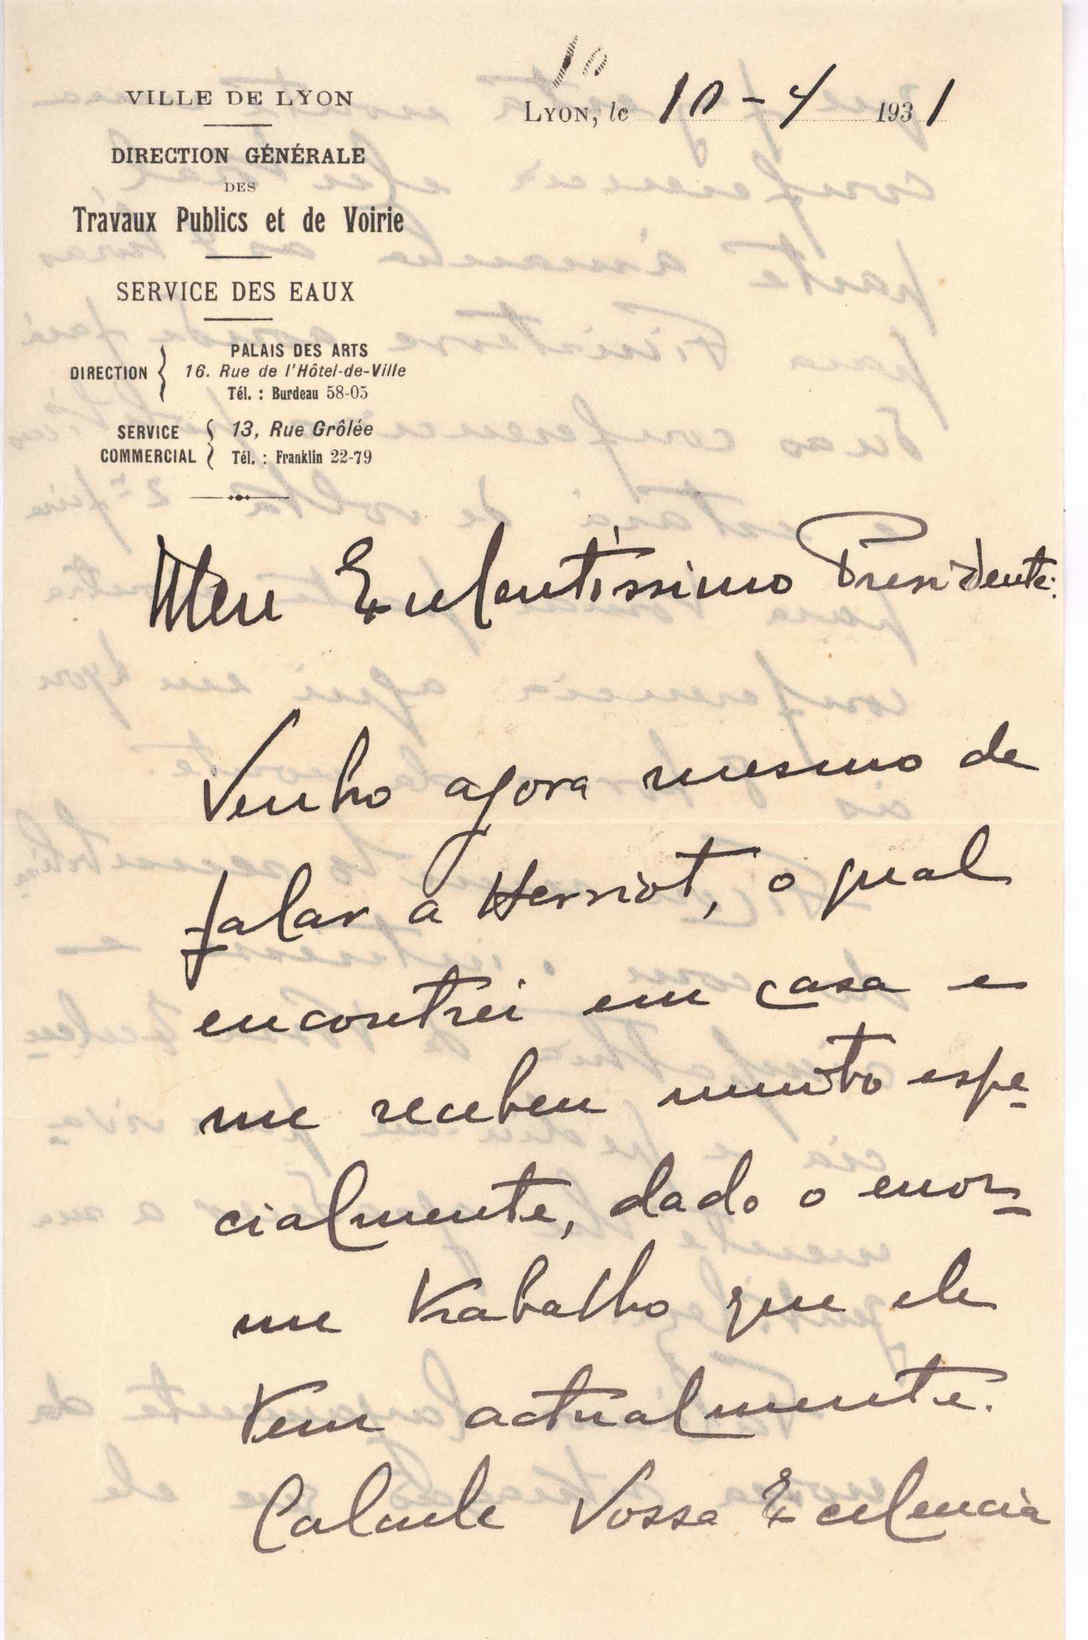 10
VILLE DE LYON
Lyon, le 10-4 1931
DIRECTION GÉNÉRALE
DES
Travaux Publics et de Voirie
SERVICE DES EAUX
DIRECTION
PALAIS DES ARTS
16. Rue de l'Hôtel-de-Ville
Tél. : Burdeau 58-05
SERVICE COMMERCIAL
13, Rue Grôlée
Tél. : Franklin 22-79
Meu Excelentissimo Presidente:
Venho agora mesmo de
falar a Herriot, o qual
encontrei em casa e
me recebeu muito espe-
cialmente, dado o enor-
me trabalho que ele
tem actualmente.
Calcule Vossa Excelencia